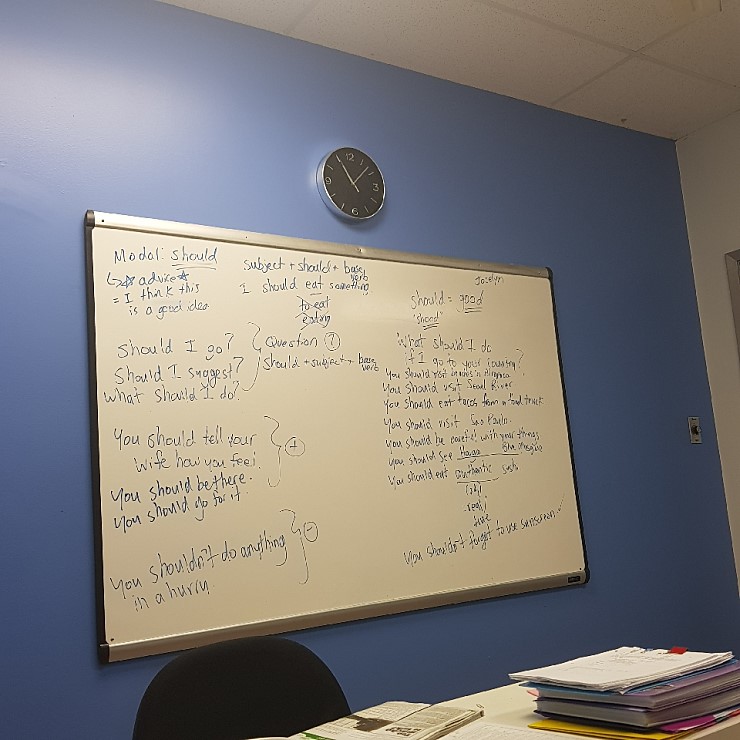 12
3
6
9
Modal: should
↳ ☆ advice ☆
= I think this
is a good idea
subject + should + base verb
I should eat something
to eat
eating
should I go?
Should I suggest?
What should I do?
Question ?
should + subject + base verb
You should tell your
wife how you feel.
You should be there.
You should go for it.
+
You shouldn't do anything
in a hurry
-
Jocelyn
should = good
"shood"
What should I do
if I go to your country?
You should visit
You should visit Seoul River
You should eat tacos from a food truck
You should visit Sao Paulo.
You should be careful with your things
You should see
You should eat authentic
real
true
You shouldn't forget to use sunscreen.